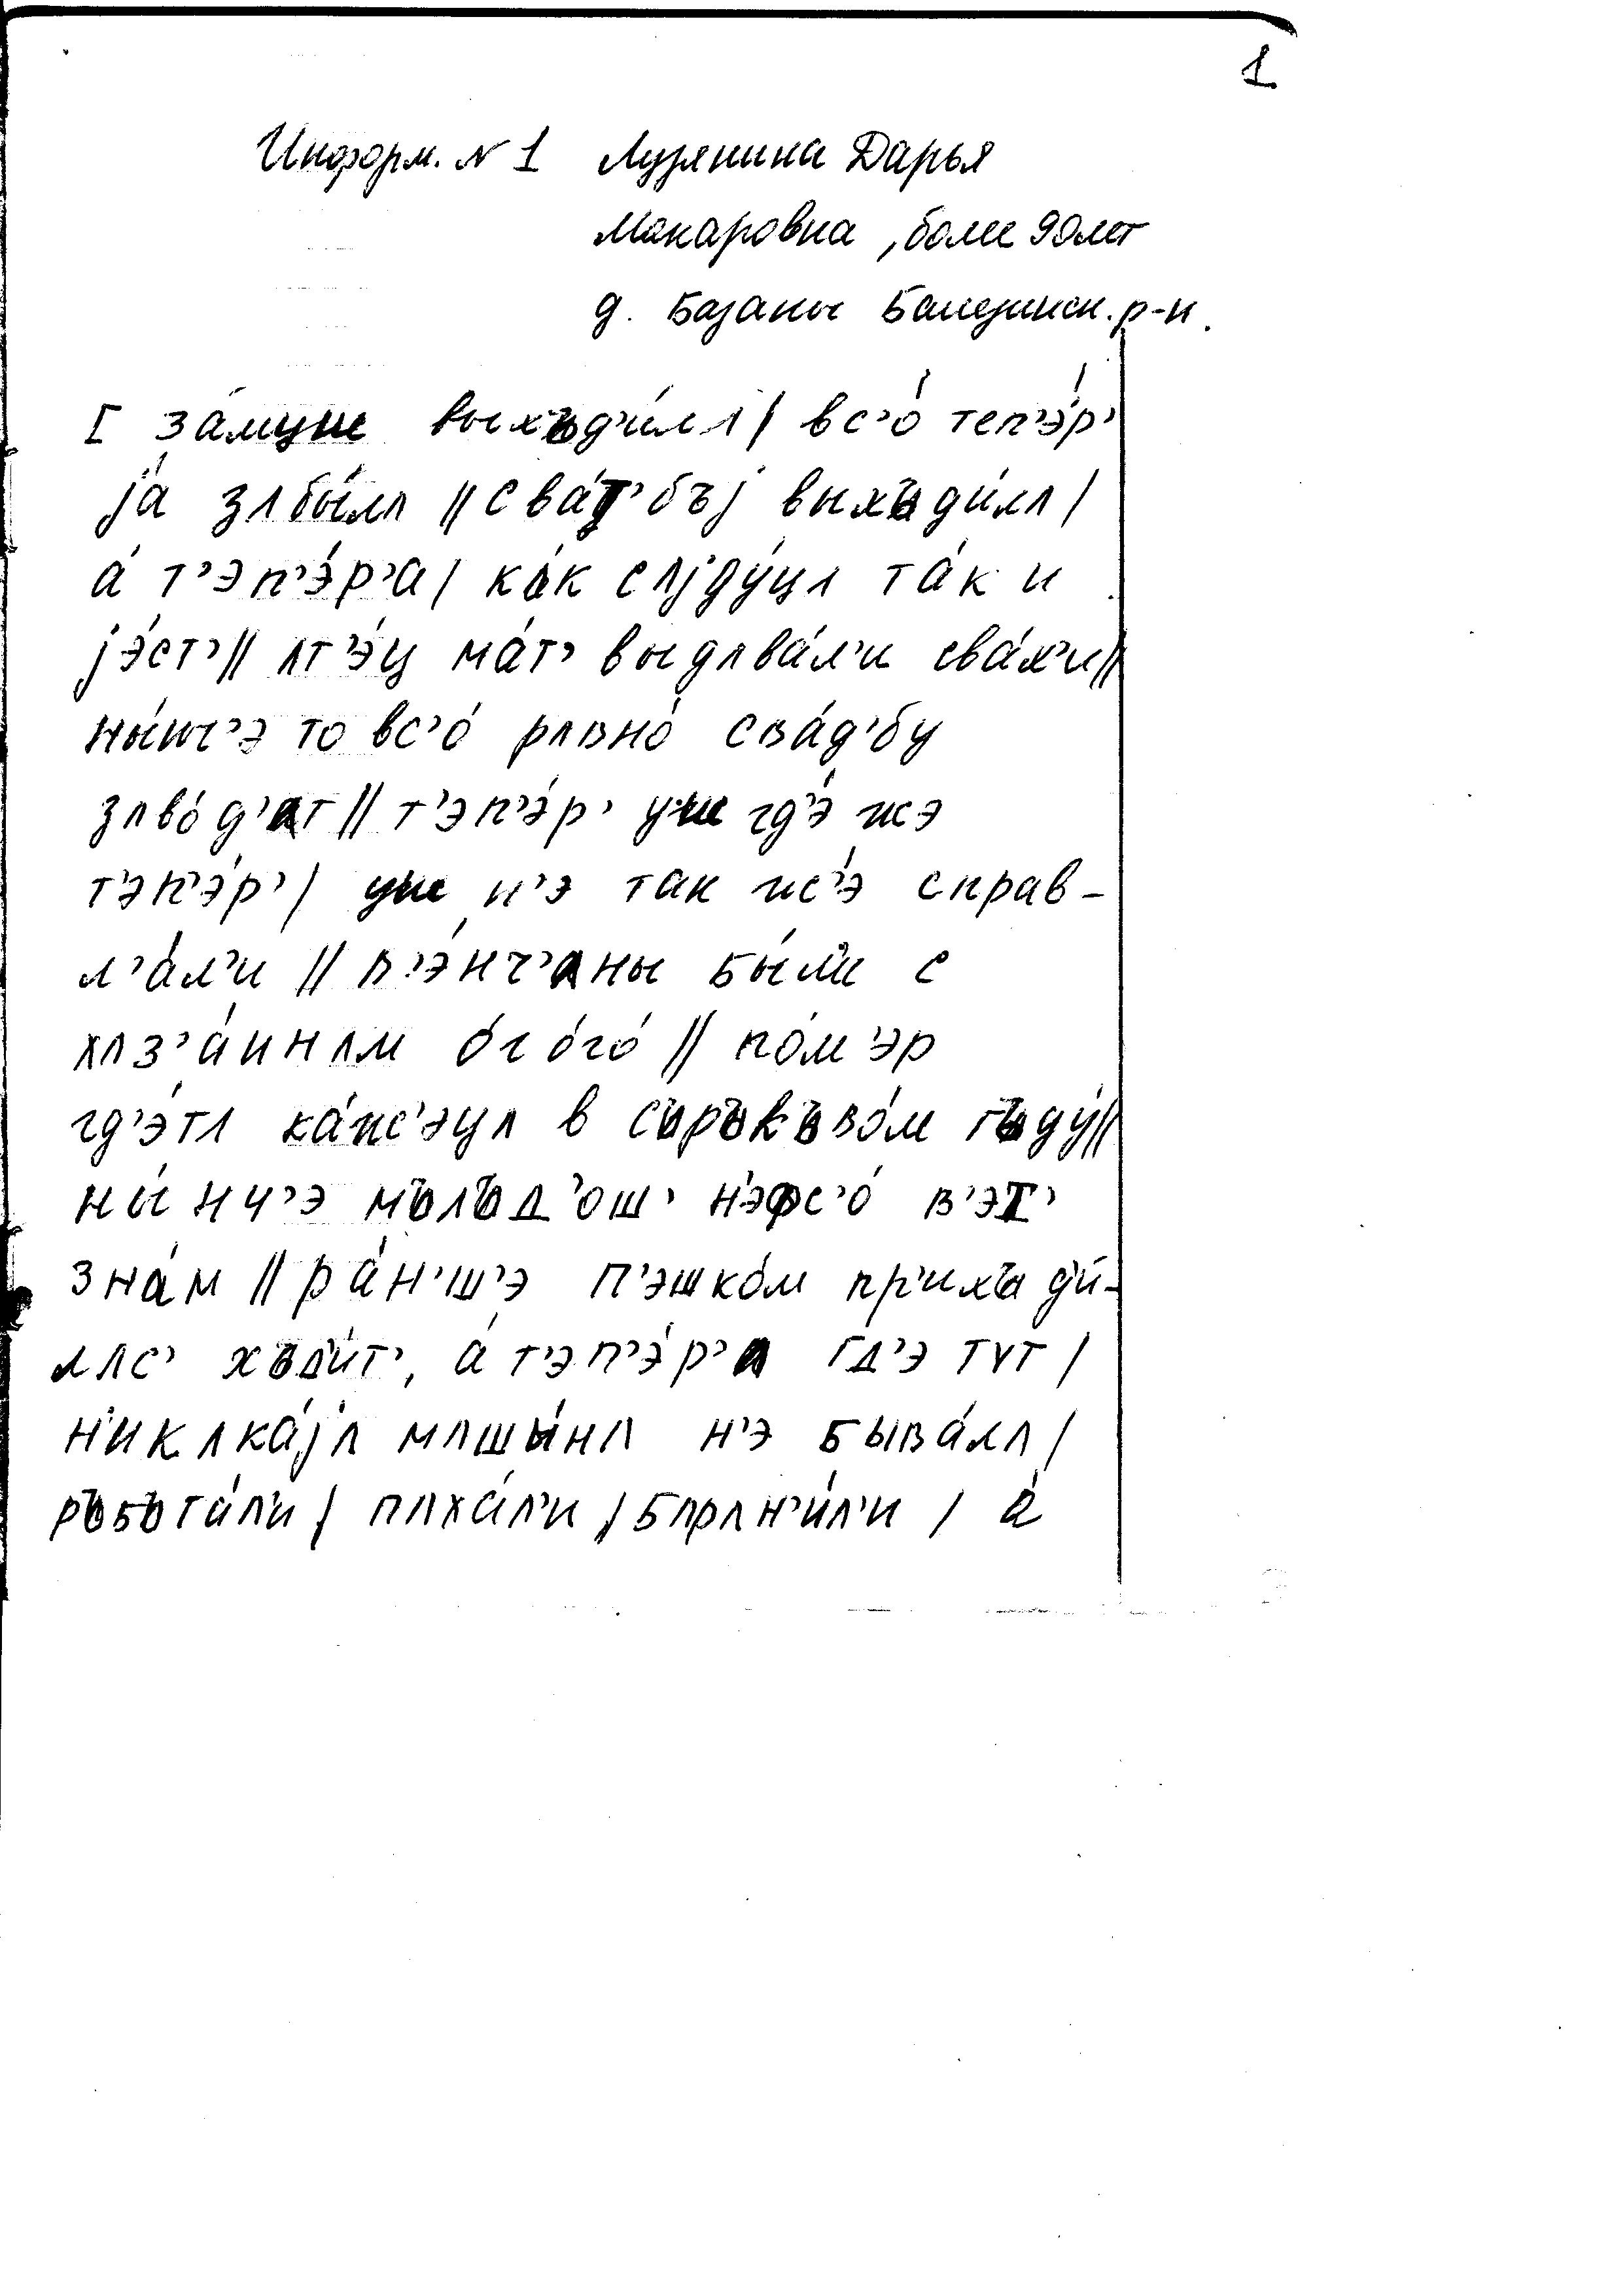 1
Информ. N 1 Лузянина Дарья
Макаровна, более 90 лет
д. Базаны Балезинск. р-н.
[ за́муш выхъд'и́лʌ | вс'о́ теп'э́р'
jа́ зʌбы́лʌ || сва́т'бъj выхъди́лʌ |
а́ т'эп'э́р'а | ка́к слjду́цʌ та́к и
jэ́ст' || ʌт'э́ц ма́т' выдʌва́л'и сва́х'и ||
ны́нч'э то вс'о́ рʌвно́ сва́д'бу
зʌво́д'ат || т'эп'э́р' уш гд'э́ жэ
т'эп'э́р' | уш н'э так ж'э́ справ-
л'а́л'и || в'э́нч'аны бы́л'и с
хʌз'а́инʌм о́го́го́ || по́м'эр
гд'э́тʌ ка́ж'эцʌ в съръкъво́м гъду́ ||
ны́нч'э мълъд'ош' н'эфс'о́ в'эт'
зна́м || ра́н'ш'э п'эшко́м пр'ихъд'и́-
лʌс' хъд'и́т', а́ т'эп'э́р'а гд'э тут |
н'икʌка́jʌ мʌшы́нʌ н'э быва́лʌ |
ръбъта́л'и | пʌха́л'и | бʌрʌн'и́л'и | а́